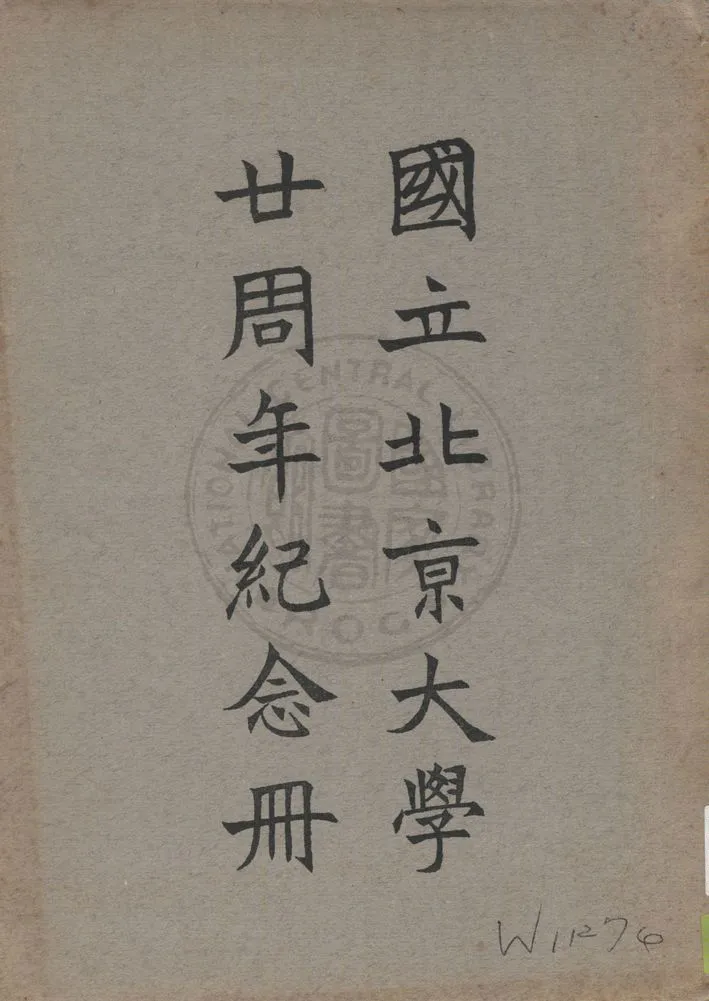 國立北京大學
廿周年紀念冊
CENTRAL
圖書